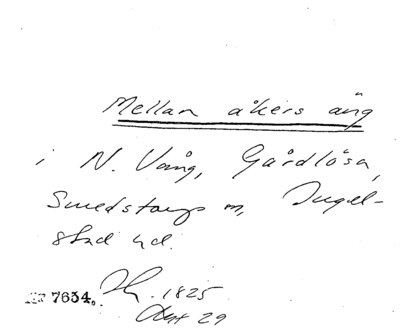 Mellan åkers äng
i N. Vång, Gårdlösa,
Smedstorps sn, Ingel-
stad hd.
7634. 1825
Akt 29